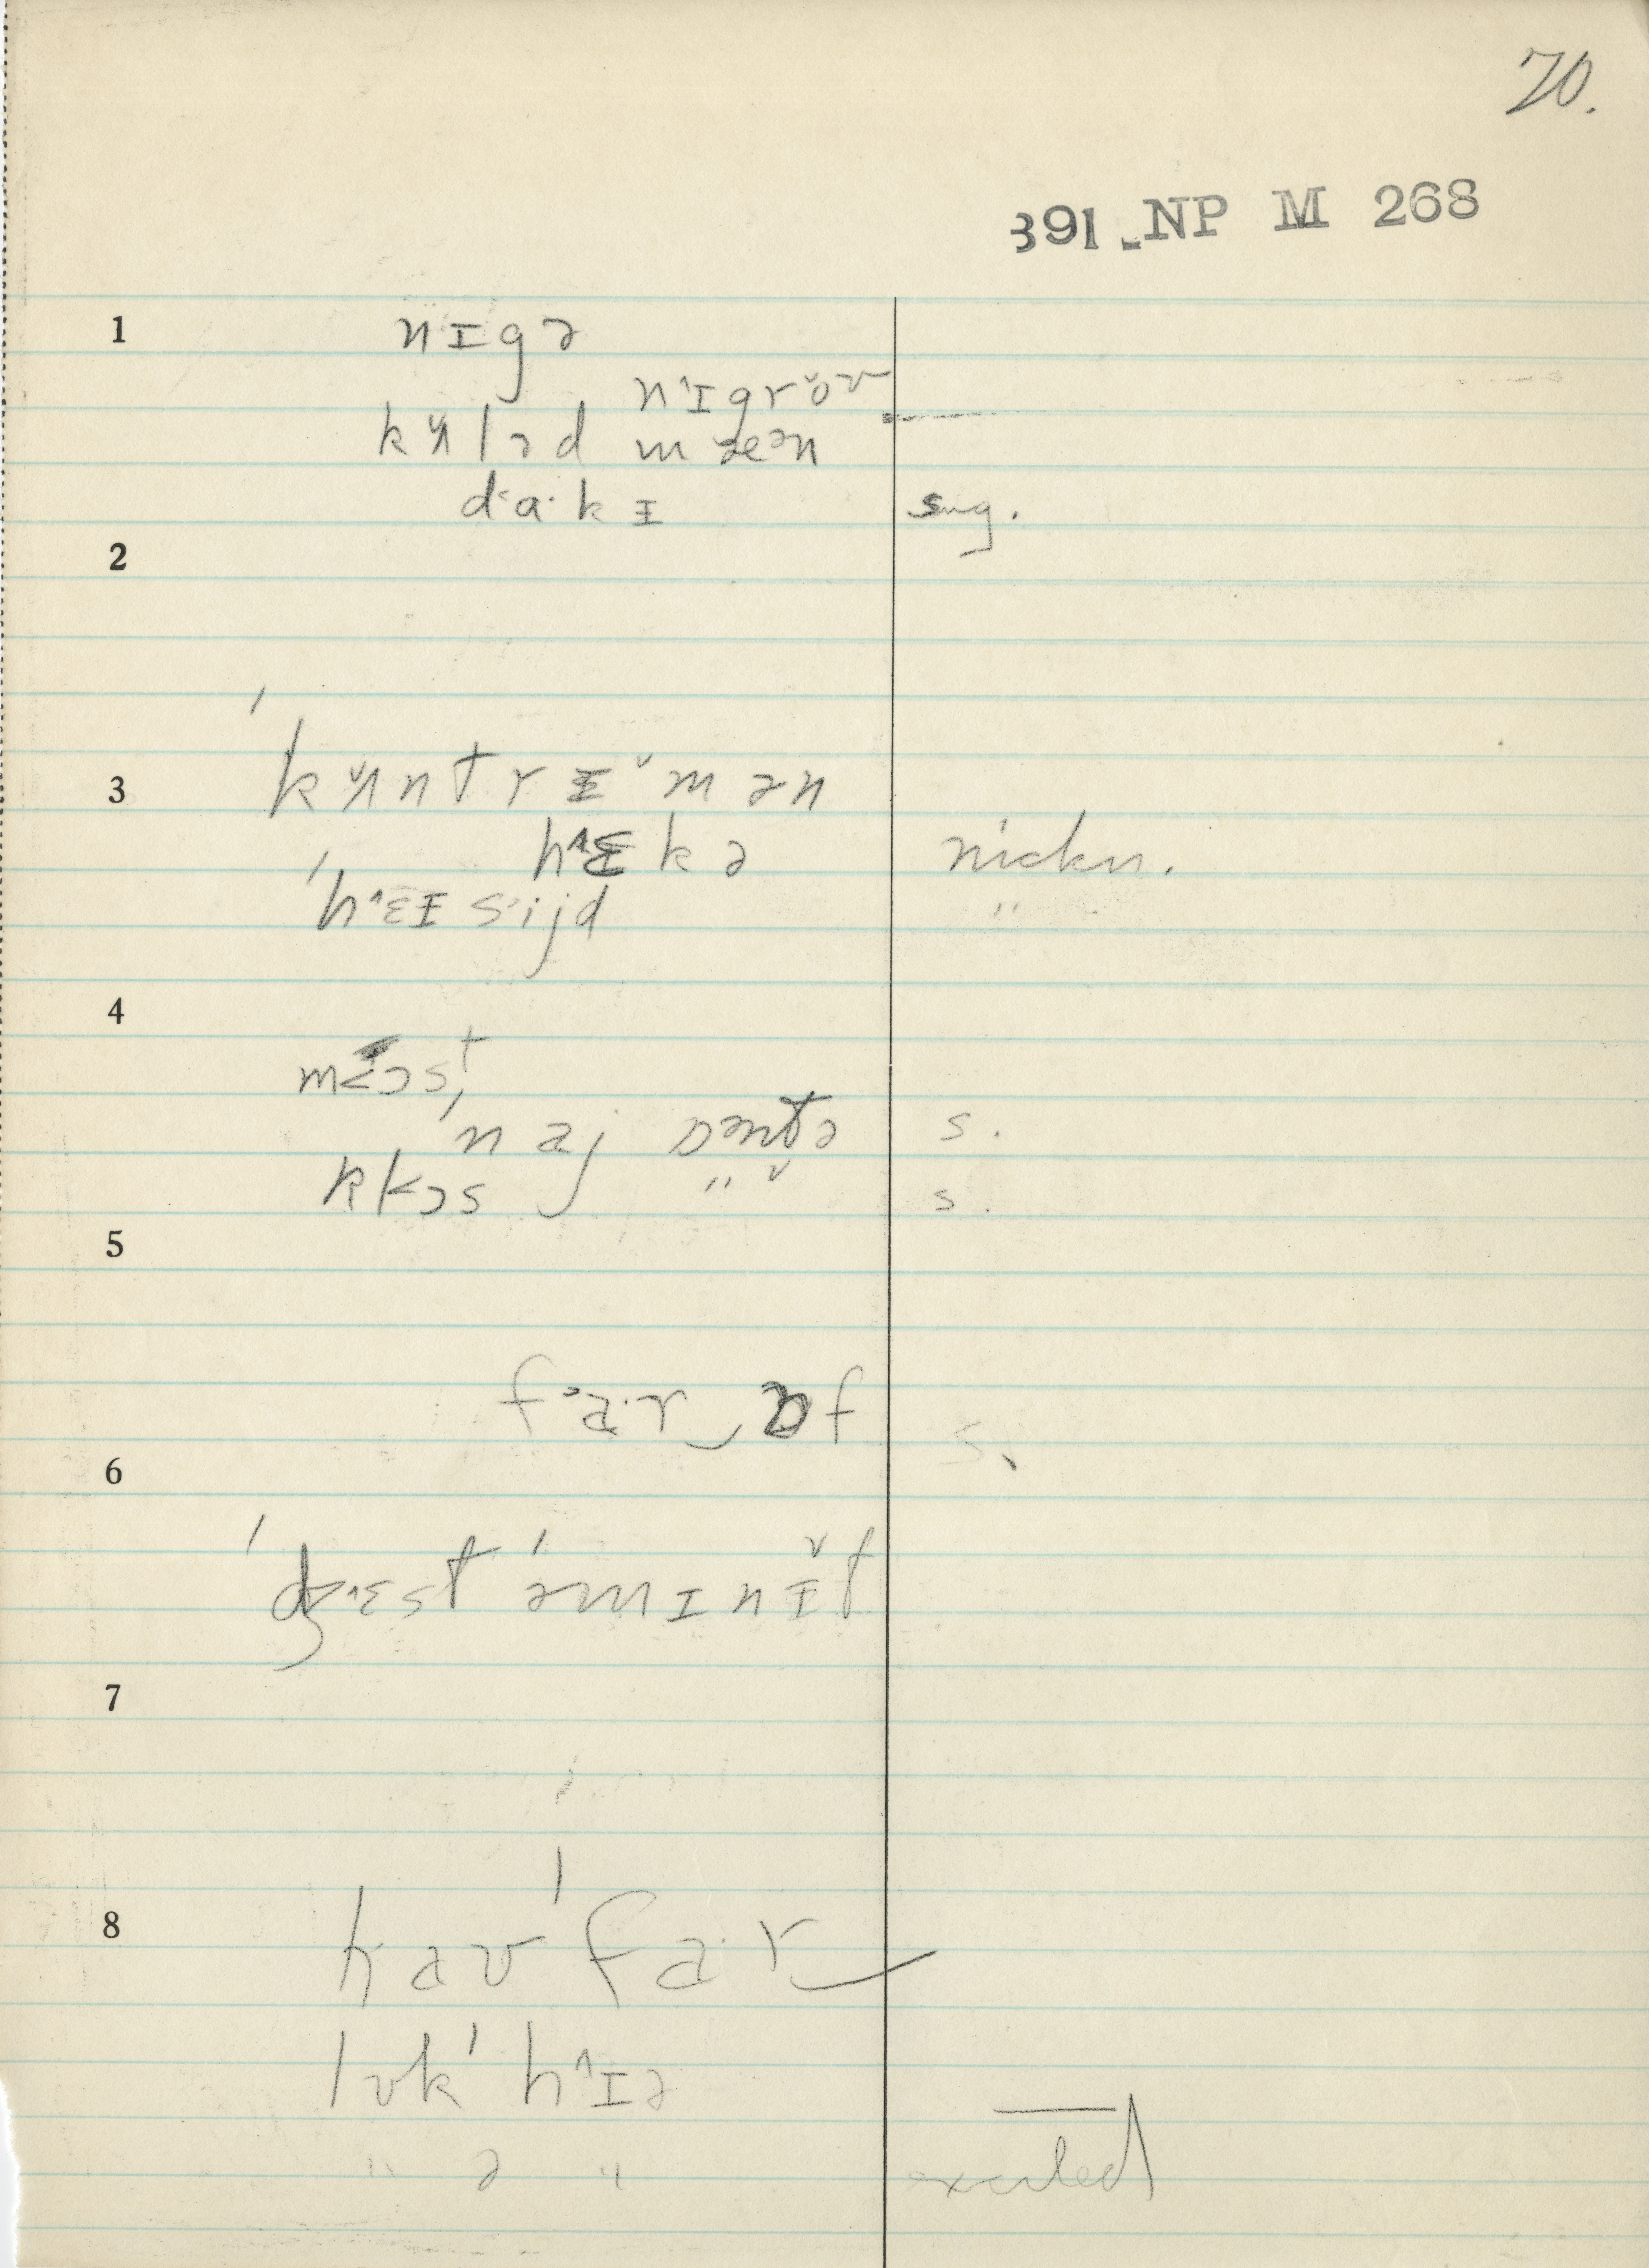 70.
391 NP M 268
1 nɪgə
n˄ɪgrʊ̌
kʌ̌ləd mæən
da·kɪ sug.
2
3 ˈkʌ̌ntrɪ̌mən
h˄ɛkə nickn.
ˈh˄ɛɪsijd "
4 m<ɔst,
ˈnaj s.
k<ɔs " s.
5
fa·r‿ɒf s.
6
ˈdʒ˄ɛst ˈəmɪnɪ̌t
7
8 haʊ ˈfa·r‿
lʊk ˈh˄ɪə
" ə " excited